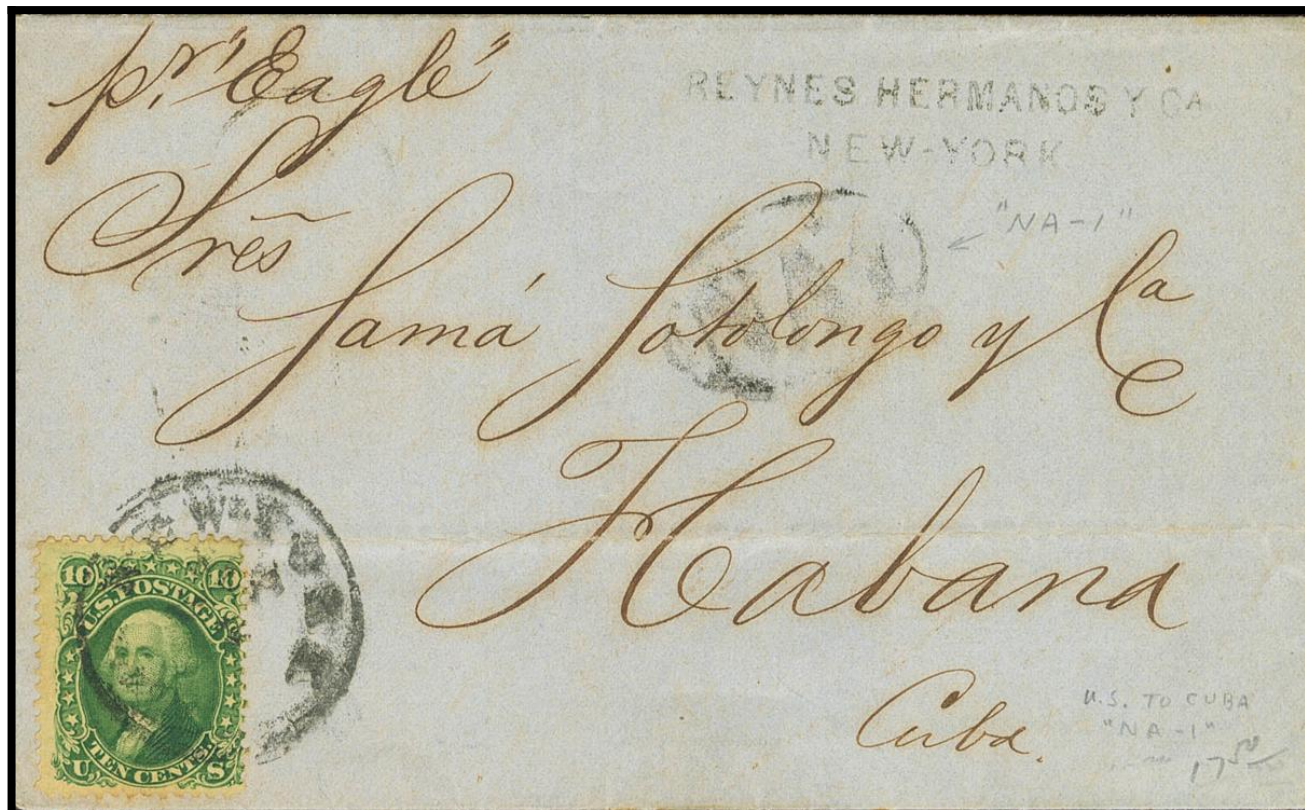 pr. "Eagle"
REYNES HERMANOS Y CA
NEW-YORK
"NA-1"
Srẽs
Samá Sotolongo y Ca
Habana
Cuba.
U.S. TO CUBA
"NA-1"
17 50
10 10
U.S. POSTAGE
TEN CENTS.
U S